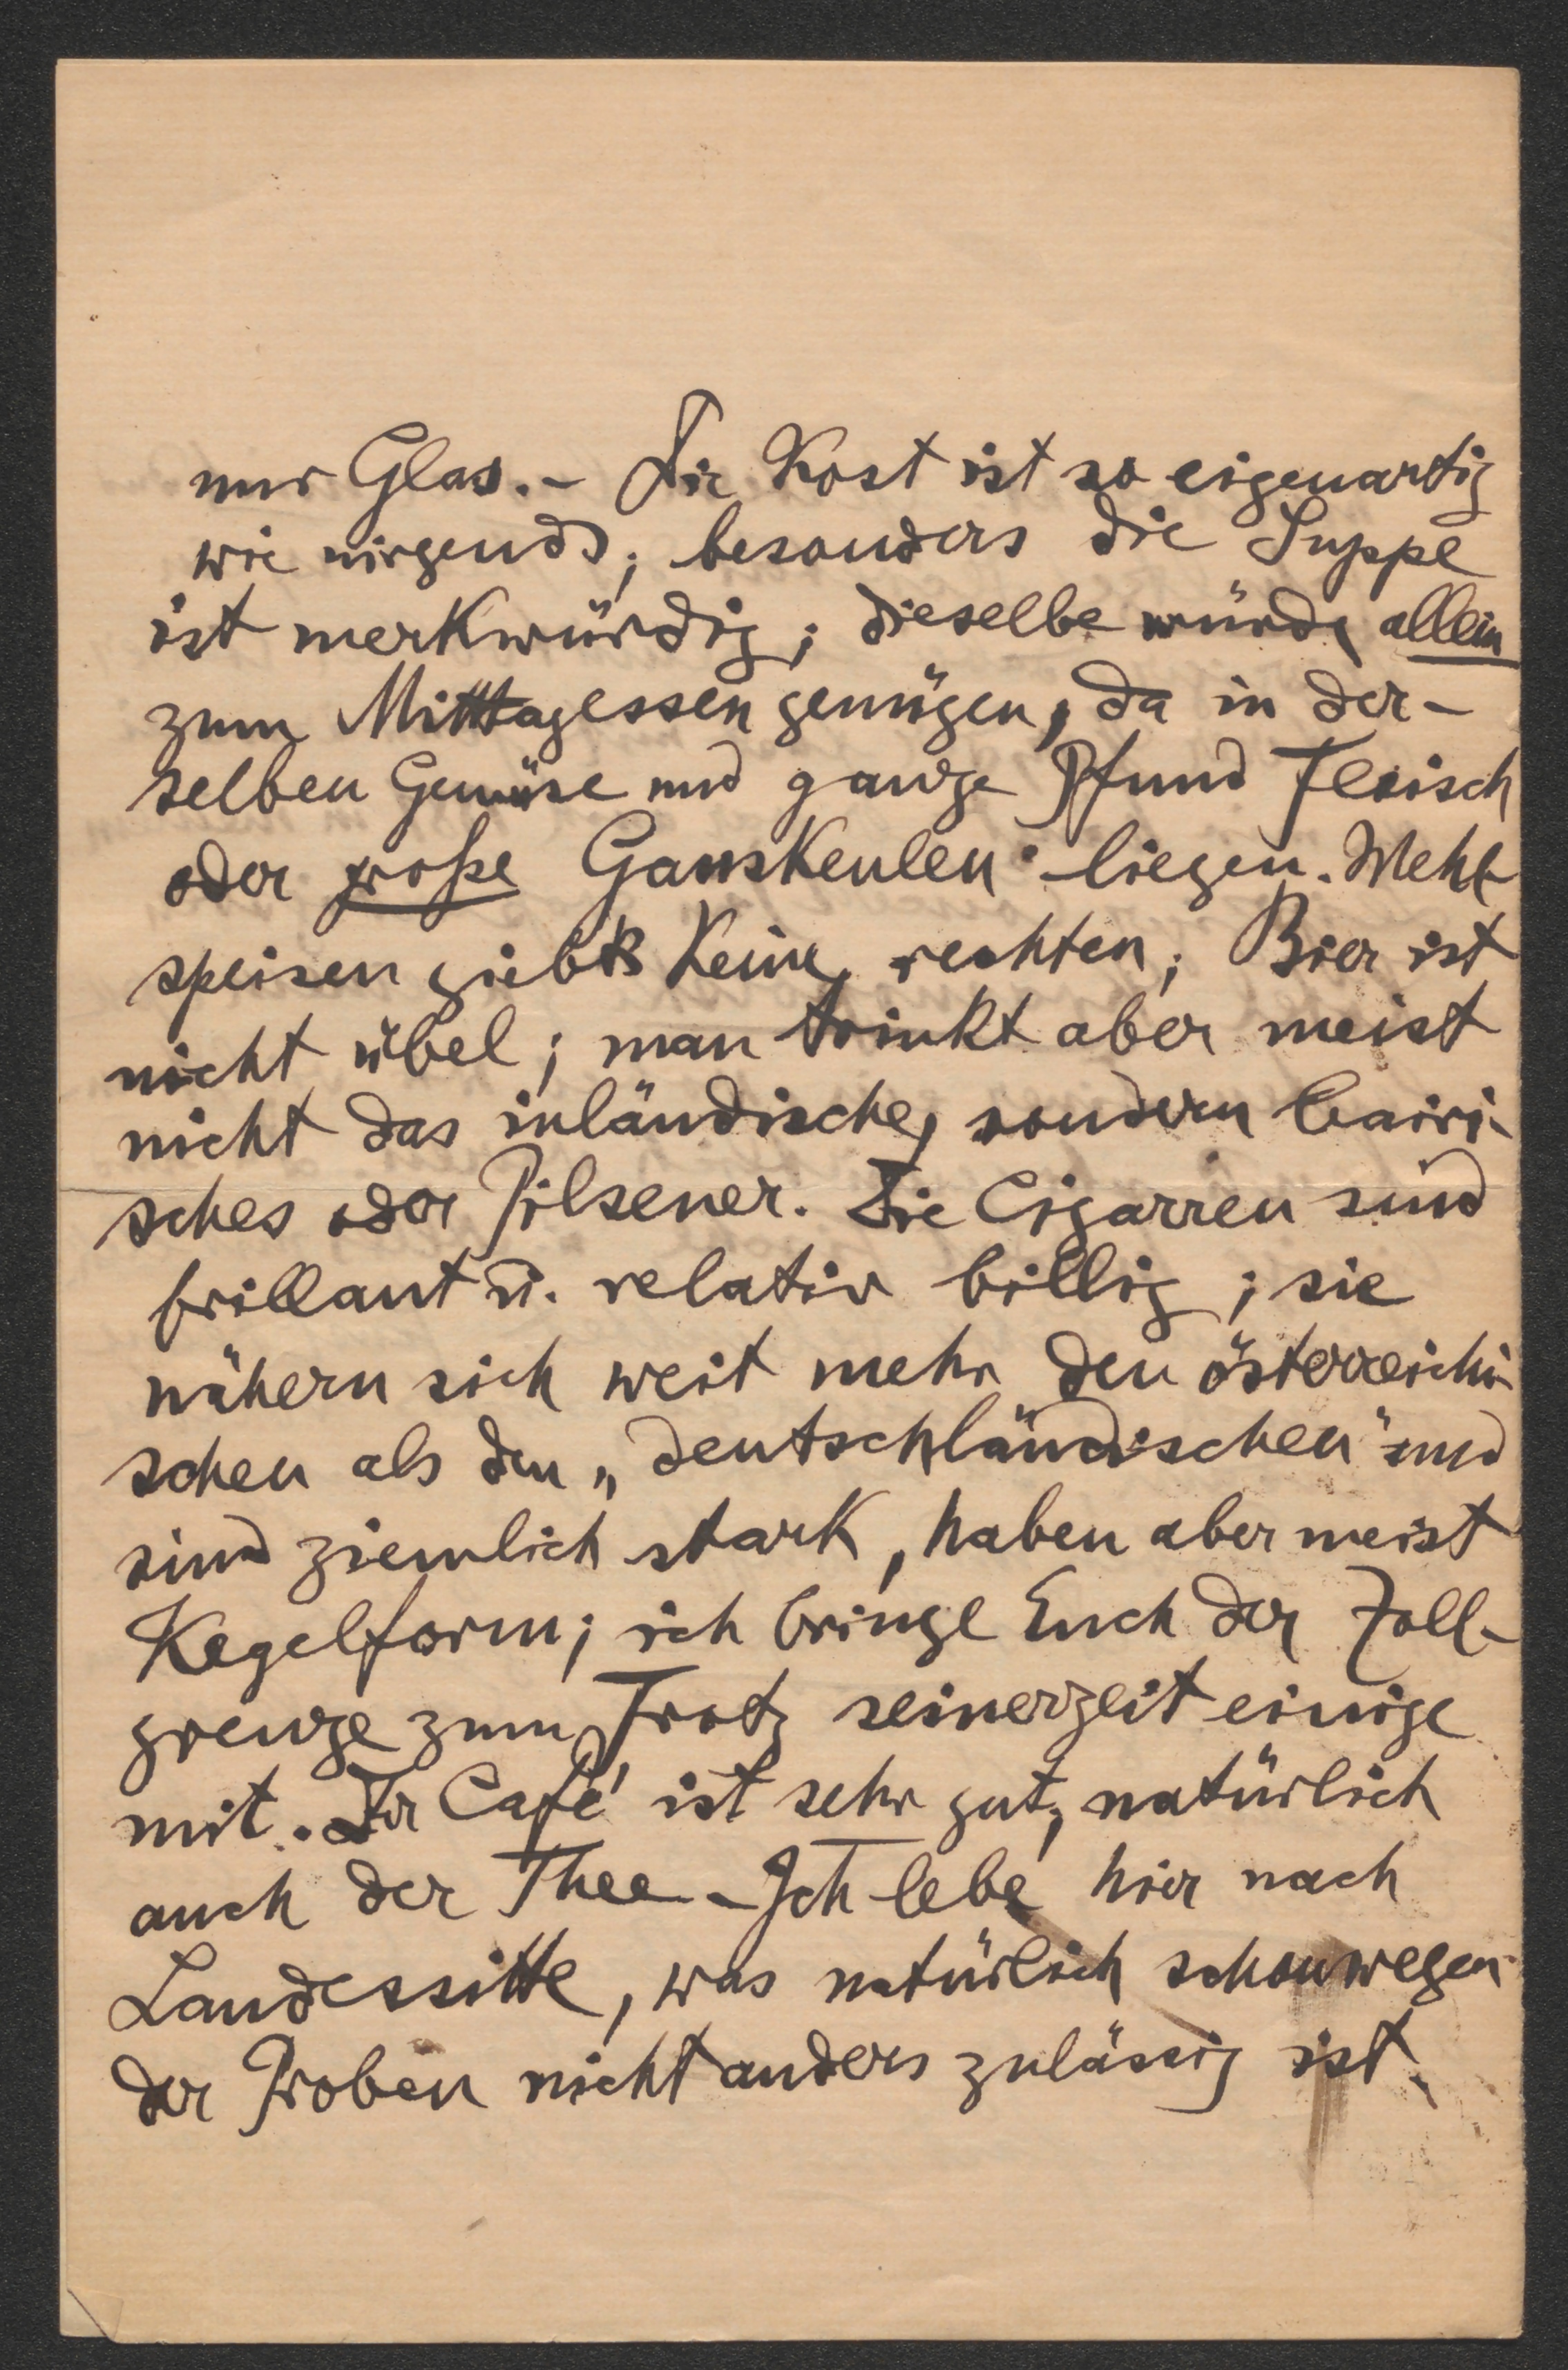 nur Glas. – Die Kost ist so eigenartig
wie nirgends; besonders die Suppe
ist merkwürdig; dieselbe würde allein
zum Mittagessen genügen, da in der-
selben Gemüse und ganze Pfund Fleisch
oder große Ganskeulen liegen. Mehl-
speisen giebts keine rechten; Bier ist
nicht übel; man trinkt aber meist
nicht das inländische, sondern bairi-
sches oder Pilsener. Die Cigarren sind
brillant u. relativ billig; sie
nähern sich weit mehr den österreichi-
schen als den „deutschländischen“ und
sind ziemlich stark, haben aber meist
Kegelform; ich bringe Euch der Zoll-
grenze zum Trotz seinerzeit einige
mit. Der Café ist sehr gut, natürlich
auch der Thee – Ich lebe hier nach
Landessitte, was natürlich schon wegen
der Proben nicht anders zulässig ist.